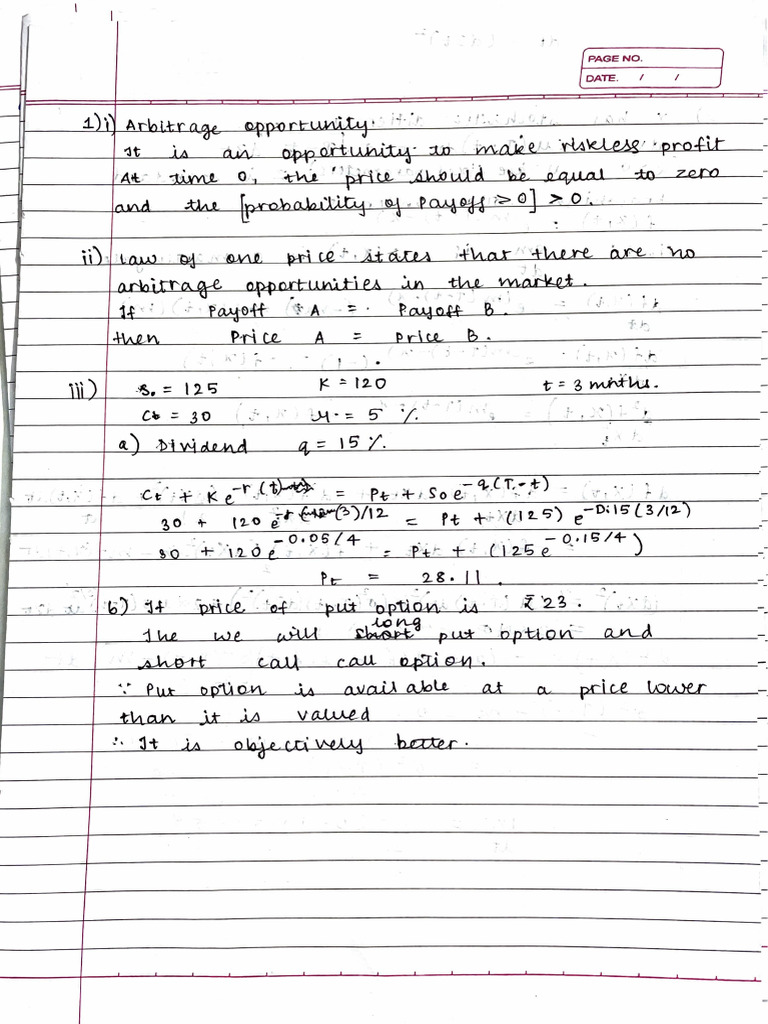 PAGE NO.
DATE. / /
1) i) Arbitrage opportunity.
It is an opportunity to make riskless profit
At time 0, the price should be equal to zero
and the [probability of Payoff ≥ 0] > 0.
ii) Law of one price states that there are no
arbitrage opportunities in the market.
If Payoff A = Payoff B.
then Price A = Price B.
iii) S₀ = 125 K = 120 t = 3 mnths.
Ct = 30 = 5 %
a) Dividend q = 15 %.
Ct + Ke^-r (t) = Pt + S₀e^-q(T-t)
30 + 120 e^-r (3)/12 = Pt + (125) e^-0.15(3/12)
30 + 120e^-0.05/4 = Pt + (125e^-0.15/4)
Pt = 28.11.
b) If price of put option is ₹23.
The we will long put option and
short call call option.
∵ Put option is available at a price lower
than it is valued
∴ It is objectively better.